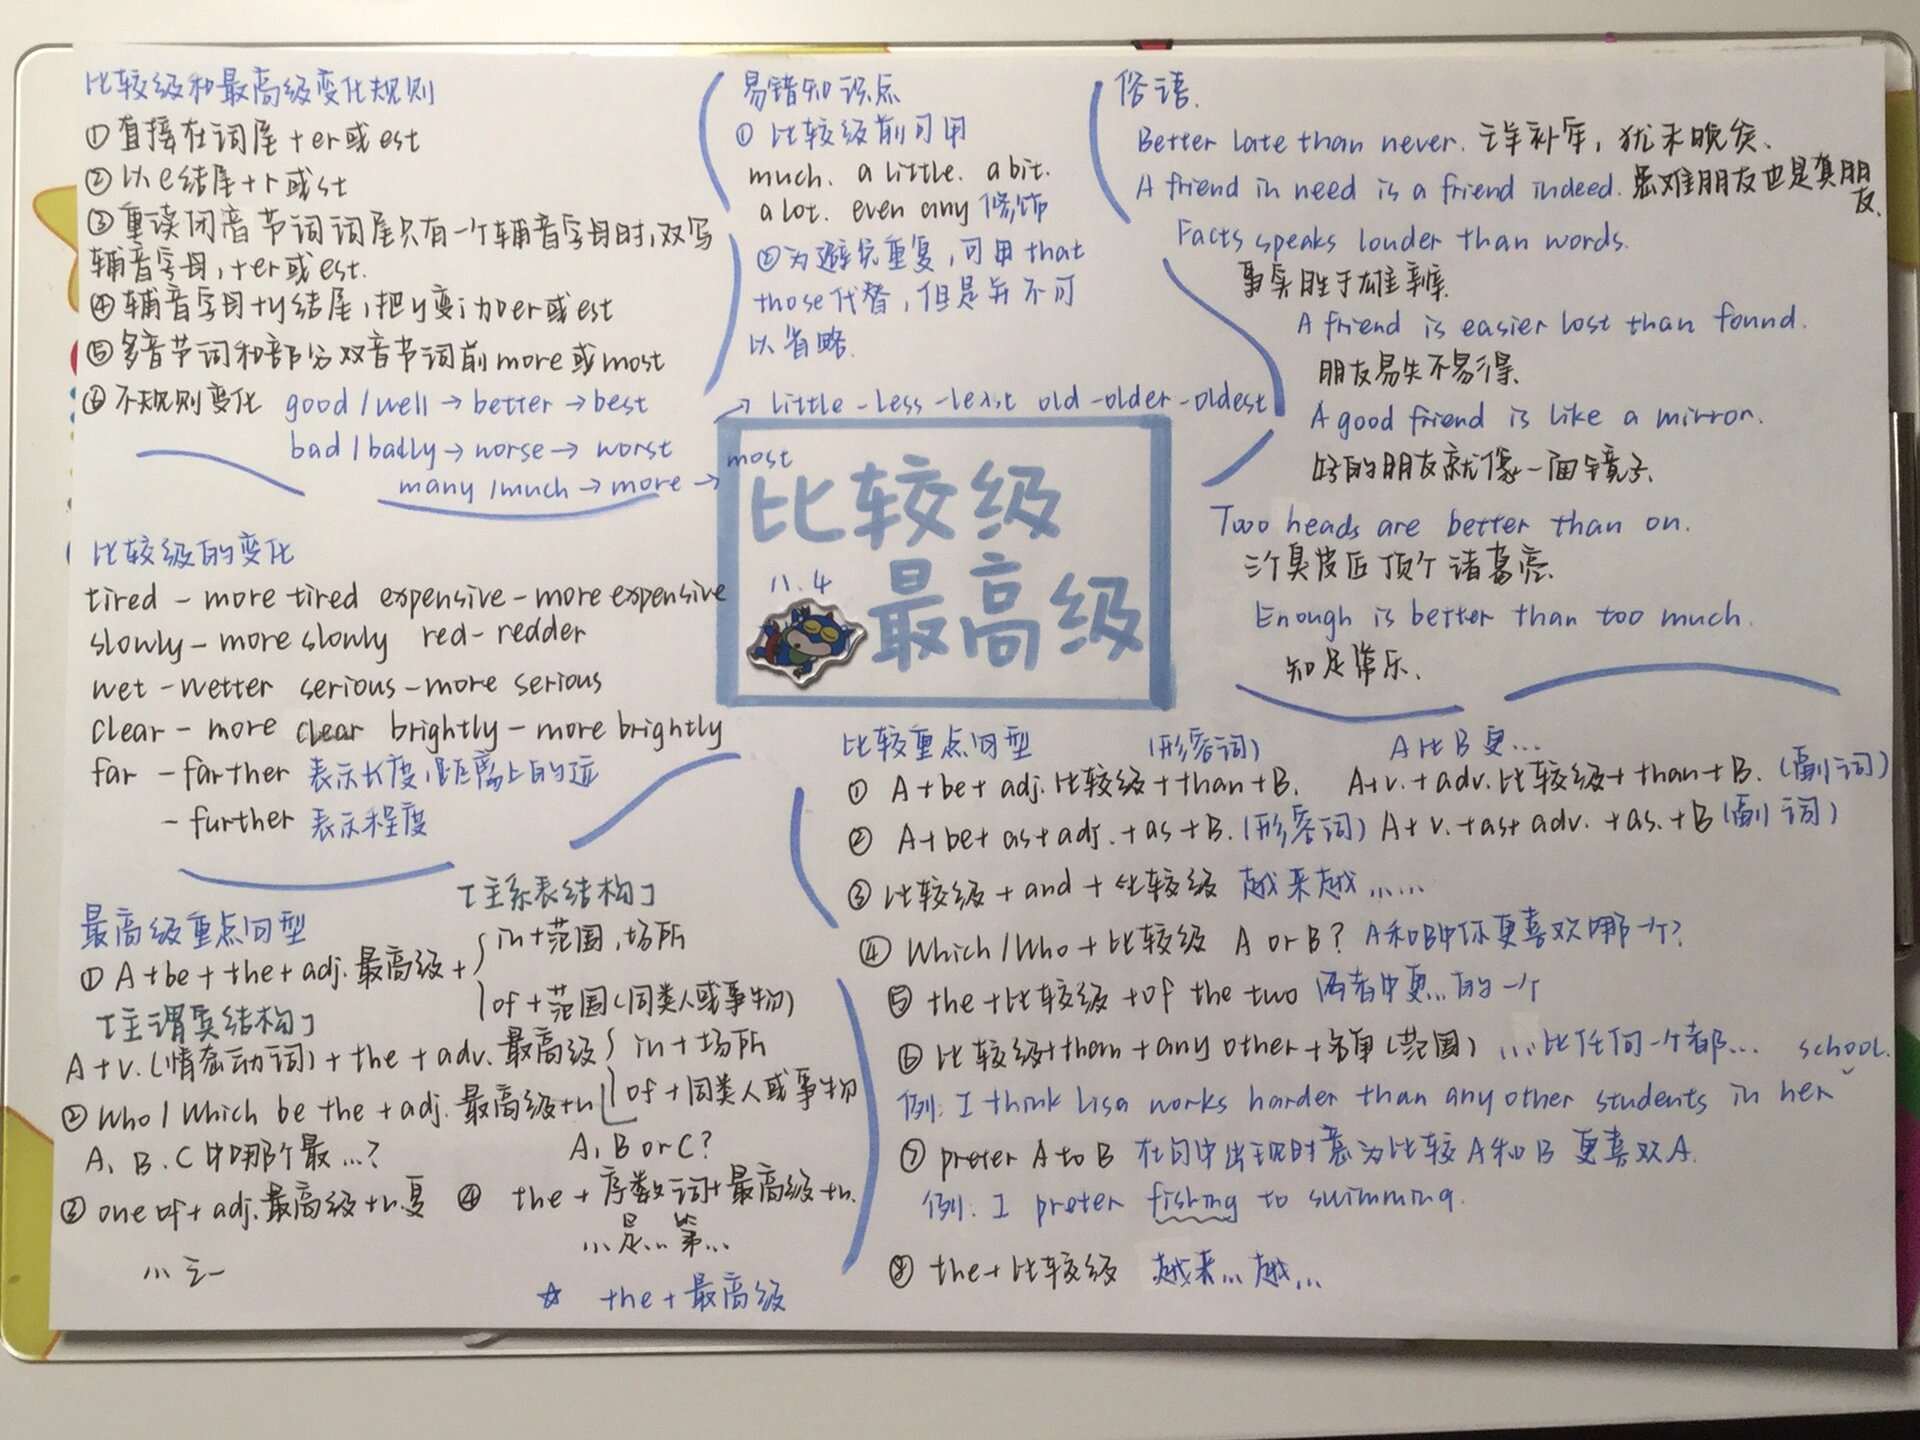 比较级和最高级变化规则
①直接在词尾+er或est
②以e结尾+r或st
③重读闭音节词词尾只有一个辅音字母时,双写
辅音字母,+er或est.
④辅音字母+y结尾,把y变i加er或est
⑤多音节词和部分双音节词前more或most
⑥不规则变化 good/well→better→best
bad/badly→worse→worst
many/much→more→most
→little-less-least old-older-oldest
易错知识点
① 比较级前可用
much. a little. a bit.
a lot. even any 修饰
②为避免重复,可用that
those代替,但是并不可
以省略.
俗语.
Better late than never. 亡羊补牢,犹未晚矣、
A friend in need is a friend indeed. 患难朋友也是真朋
友.
Facts speaks louder than words.
事实胜于雄辩.
A friend is easier lost than found.
朋友易失不易得.
A good friend is like a mirror.
好的朋友就像一面镜子.
Two heads are better than on.
三个臭皮匠顶个诸葛亮.
Enough is better than too much.
知足常乐.
比较级
最高级
11.4
比较级的变化
tired - more tired expensive - more expensive
slowly - more slowly red - redder
wet - wetter serious - more serious
clear - more clear brightly - more brightly
far - farther 表示长度,距离上的远
- further 表示程度
最高级重点句型
「主系表结构」
①A+be+the+adj.最高级+
in+范围,场所
of+范围(同类人或事物)
「主谓宾结构」
A+v.(情态动词)+the+adv.最高级
in+场所
of+同类人或事物
②Who/Which be the+adj.最高级+n
A, B or C?
A、B、C中哪个最...?
③one of+adj.最高级+n.复
...之一
④ the+序数词+最高级+n.
...是...第...
☆ the+最高级
比较重点句型 (形容词) A比B更...
① A+be+adj.比较级+than+B. A+v.+adv.比较级+than+B.(副词)
② A+be+as+adj.+as+B.(形容词) A+v.+as+adv.+as.+B(副词)
③比较级+and+比较级 越来越......
④Which/Who+比较级 A or B? A和B中你更喜欢哪一个?
⑤ the+比较级+of the two 两者中更...的一个
⑥ 比较级+them+any other+名单(范围) ...比任何一个都...
例: I think Lisa works harder than any other students in her school.
⑦ prefer A to B 在句中出现时意为比较A和B 更喜欢A.
例. I prefer fishing to swimming.
⑧ the+比较级 越来...越...